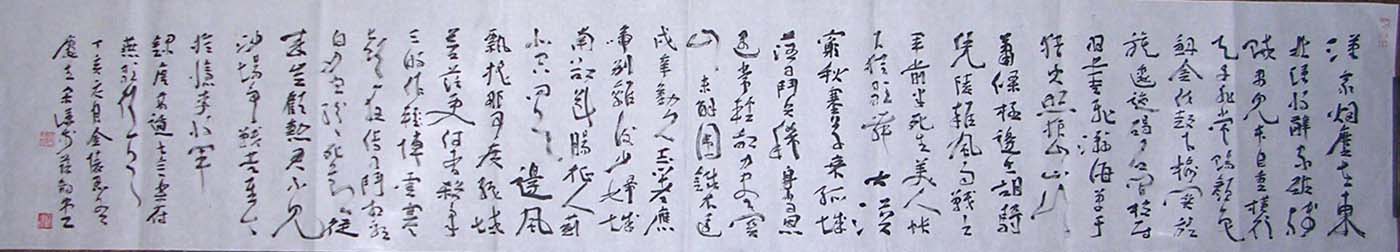 漢家烟塵在東
北漢將辭家破殘
賊男兒本自重橫行
天子非常賜顏色
摐金伐鼓下榆關旌
旆逶迤碣石間校尉
羽書飛瀚海單于
獵火照狼山山川
蕭條極邊土胡騎
憑陵雜風雨戰士
軍前半死生美人帳
下猶歌舞大漠
窮秋塞草衰孤城
落日鬥兵稀身當恩
遇常輕敵力盡關
山未解圍鐵衣遠
戍辛勤久玉箸應
啼別離後少婦城
南欲斷腸征人薊
北空回首邊風
飄颻那可度絕域
蒼茫更何有殺氣
三時作陣雲寒
聲一夜傳刁斗相看
白刃血紛紛死節從
來豈顧勳君不見
沙場爭戰苦至今
猶憶李將軍
錄唐高適七言
燕歌行
丁亥夏月金陵